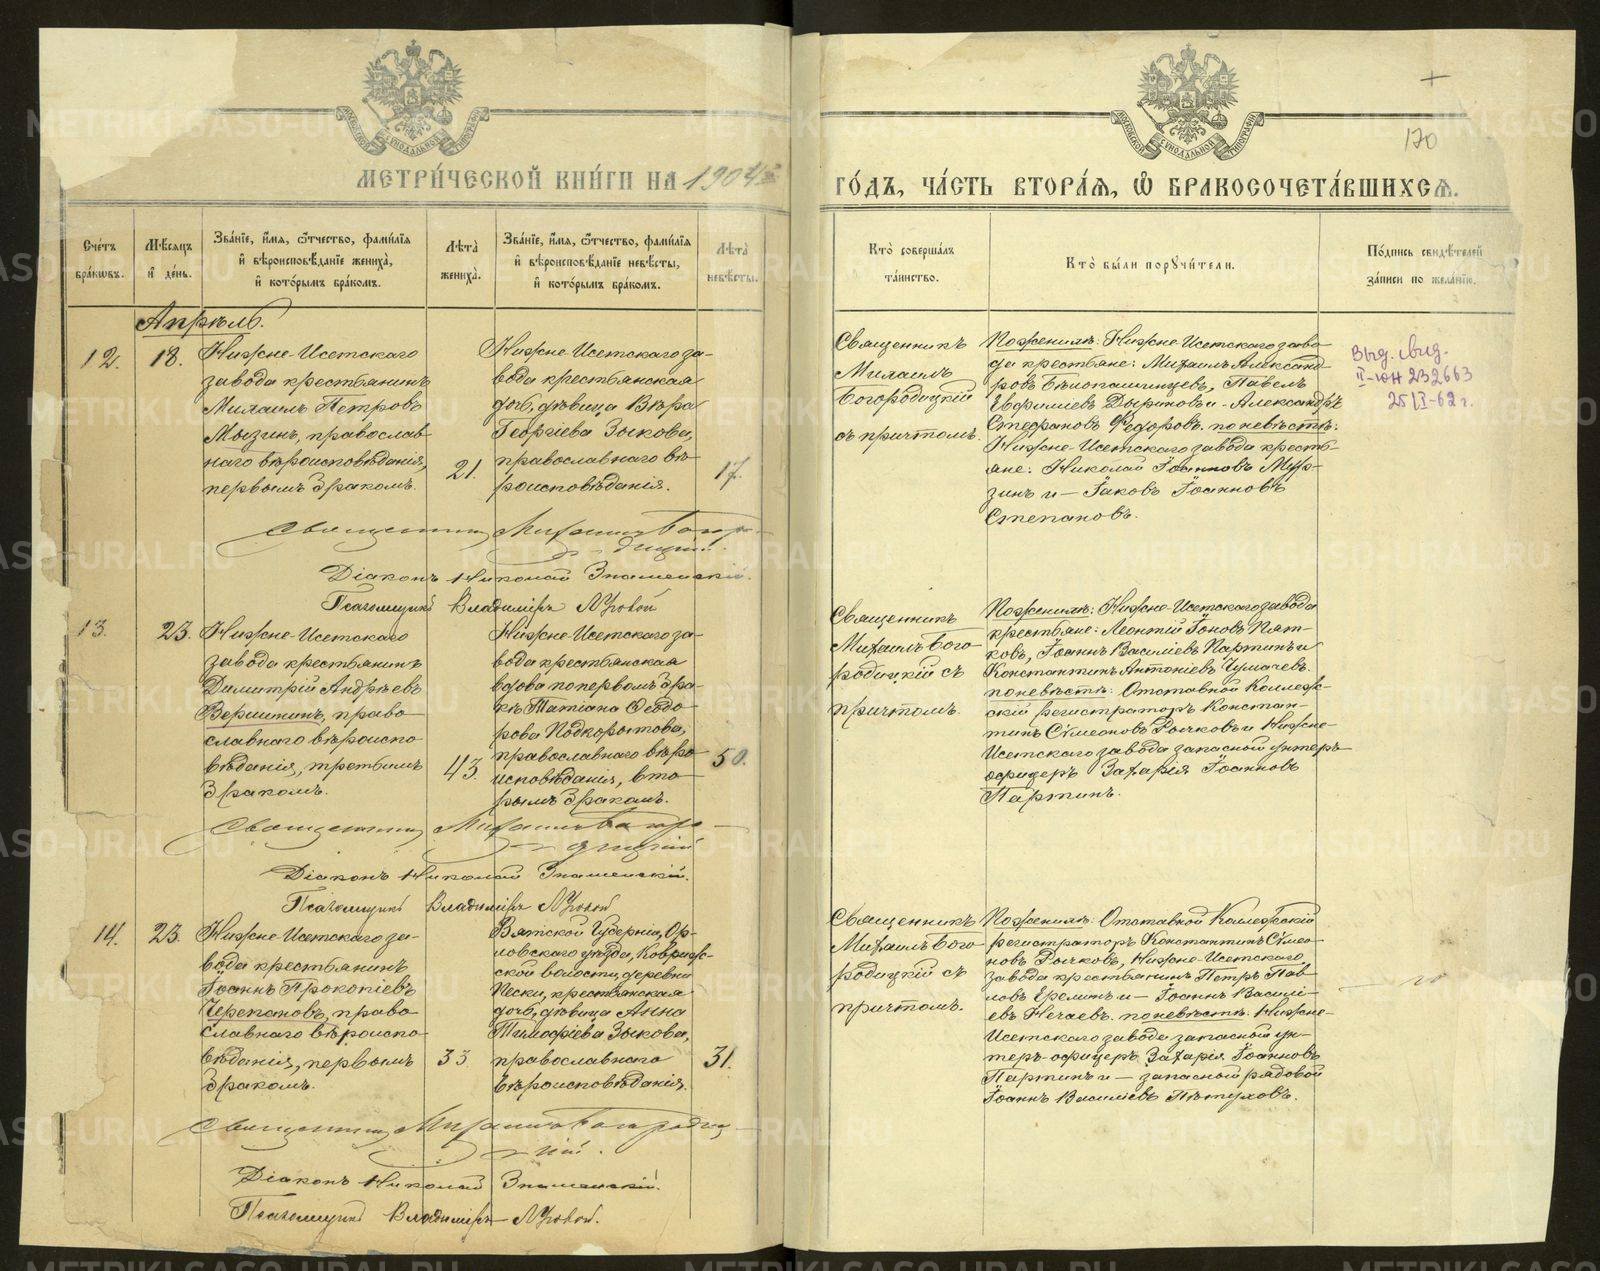 МЕТРИ́ЧЕСКОЙ КНИ́ГИ НА 1904й
ГО́ДЪ, ЧА́СТЬ ВТОРА́Ѧ, Ѡ҆ БРАКОСОЧЕТА́ВШИХСѦ.
170
Сче́тъ бра́кѡвъ.
Мѣ́сяцъ и҆ де́нь.
Зва́нїе, и҆́мя, ѻ҆́тчество, фами́лїя
и҆ вѣроисповѣ́данїе жениха̀,
и҆ кото́рымъ бра́комъ.
Лѣта̀ жениха̀.
Зва́нїе, и҆́мя, ѻ҆́тчество, фами́лїя
и҆ вѣроисповѣ́данїе невѣ́сты,
и҆ кото́рымъ бра́комъ.
Лѣта̀ невѣ́сты.
Кто̀ соверша́лъ
та́инство.
Кто̀ бы́ли порꙋчи́тели.
По́дпись свидѣ́телей
за́писи по жела́нїю.
Апрѣль.
12.
18.
Нижне-Исетскаго
завода крестьянинъ
Михаилъ Петровъ
Мызинъ, православ-
наго вѣроисповѣданія,
первымъ бракомъ.
21.
Нижне-Исетскаго за-
вода крестьянская
дочь, дѣвица Вѣра
Георгіева Зыкова,
православнаго вѣ-
роисповѣданія.
17.
Священникъ
Михаилъ
Богородицкій
съ причтомъ.
По женихѣ: Нижне-Исетскаго заво-
да крестьяне: Михаилъ Александ-
ровъ Бѣлопашинцевъ, Павелъ
Евфиміевъ Дыриновъ и Александръ
Стефановъ Ѳедоровъ. по невѣстѣ:
Нижне-Исетскаго завода кресть-
яне: Николай Іоанновъ Мур-
зинъ и Іаковъ Іоанновъ
Степановъ.
Выд. свид.
II-ЮН 232663
25/I-62 г.
Священникъ Михаилъ Богоро-
дицкій.
Діаконъ Николай Знаменскій.
Псаломщикъ Владиміръ Луговой
13.
23.
Нижне-Исетскаго
завода крестьянинъ
Димитрій Андреевъ
Вершининъ, право-
славнаго вѣроиспо-
вѣданія, третьимъ
бракомъ.
43.
Нижне-Исетскаго за-
вода крестьянская
вдова по первомъ бра-
кѣ Татіана Ѳеодо-
рова Подкорытова,
православнаго вѣро-
исповѣданія, вто-
рымъ бракомъ.
50.
Священникъ
Михаилъ Бого-
родицкій съ
причтомъ.
По женихѣ: Нижне-Исетскаго завода
крестьяне: Леонтій Іоновъ Пят-
ковъ, Іоаннъ Василіевъ Партинъ и
Константинъ Антоніевъ Чумачевъ.
по невѣстѣ: Отставной Коллеж-
скій регистраторъ Констан-
тинъ Сѵмеоновъ Рычковъ и Нижне-
Исетскаго завода запасной унтеръ-
офицеръ Захарія Іоанновъ
Партинъ.
Священникъ Михаилъ Богоро-
дицкій
Діаконъ Николай Знаменскій.
Псаломщикъ Владиміръ Луговой
14.
23.
Нижне-Исетскаго за-
вода крестьянинъ
Іоаннъ Прокопіевъ
Черепановъ, право-
славнаго вѣроиспо-
вѣданія, первымъ
бракомъ.
33.
Вятской Губерніи, Ор-
ловскаго уѣзда, Ковриж-
ской волости, деревни
Пески, крестьянская
дочь, дѣвица Анна
Тимофіева Зыкова,
православнаго
вѣроисповѣданія.
31.
Священникъ
Михаилъ Бого-
родицкій съ
причтомъ.
По женихѣ: Отставной Коллежскій
регистраторъ Константинъ Сѵмео-
новъ Рычковъ, Нижне-Исетскаго
завода крестьянинъ Петръ Пав-
ловъ Еремину и Іоаннъ Василі-
евъ Нечаевъ. по невѣстѣ: Нижне-
Исетскаго завода запасной ун-
теръ-офицеръ Захарія Іоанновъ
Партинъ и запасной рядовой
Іоаннъ Василіевъ Пѣтуховъ.
Священникъ Михаилъ Богородиц-
кій.
Діаконъ Николай Знаменскій.
Псаломщикъ Владиміръ Луговой.
METRIKI.GASO-URAL.RU